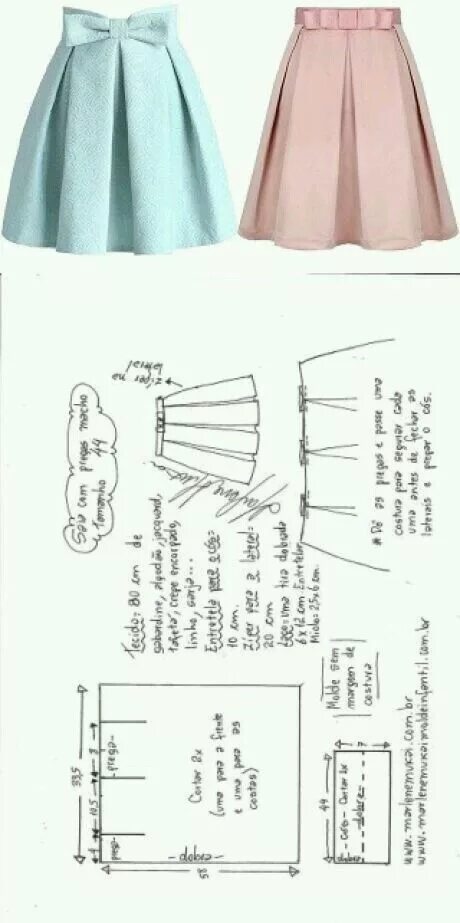 Saia com pregas macho
Tamanho 44
zíper na
lateral
Tecido= 80 cm de
gabardine, algodão, jacquard,
tafetá, crepe encorpado,
linho, sarja...
Entretela para o cós=
10 cm.
Zíper para a lateral=
20 cm
Laço= uma tira dobrada
6 x 12 cm Entretelar
Miolo: 2,5 x 6 cm.
# Dê as pregas e passe uma
costura para segurar cada
uma antes de fechar as
laterais e pregar o cós.
33,5
4
10,5
8
prega
prega
Cortar 2x
(uma para a frente
e uma para as
costas)
- dobra -
58
Molde sem
margem de
costura
44
- cós - Cortar 2x
dobra
7
www.marlenemukai.com.br
www.marlenemukaimoldeinfantil.com.br